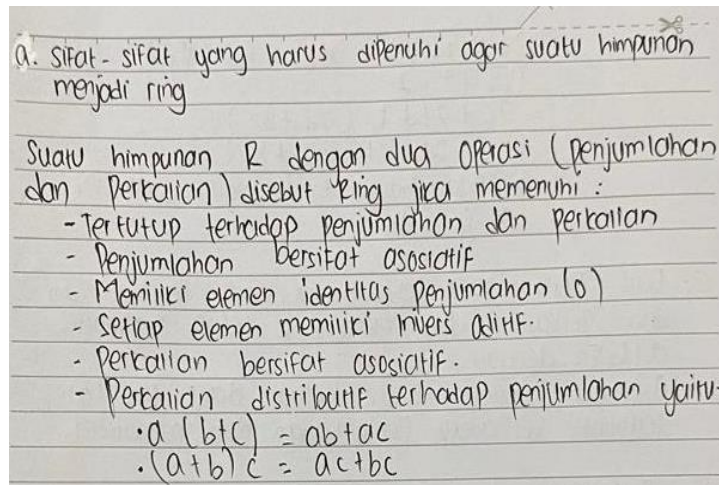 a. Sifat-sifat yang harus dipenuhi agar suatu himpunan
menjadi ring
Suatu himpunan R dengan dua operasi (penjumlahan
dan Perkalian) disebut Ring jika memenuhi :
- Tertutup terhadap penjumlahan dan perkalian
- Penjumlahan bersifat asosiatif
- Memiliki elemen identitas Penjumlahan (0)
- Setiap elemen memiliki invers aditif.
- Perkalian bersifat asosiatif.
- Perkalian distributif terhadap penjumlahan yaitu.
• a (b+c) = ab+ac
• (a+b) c = ac+bc